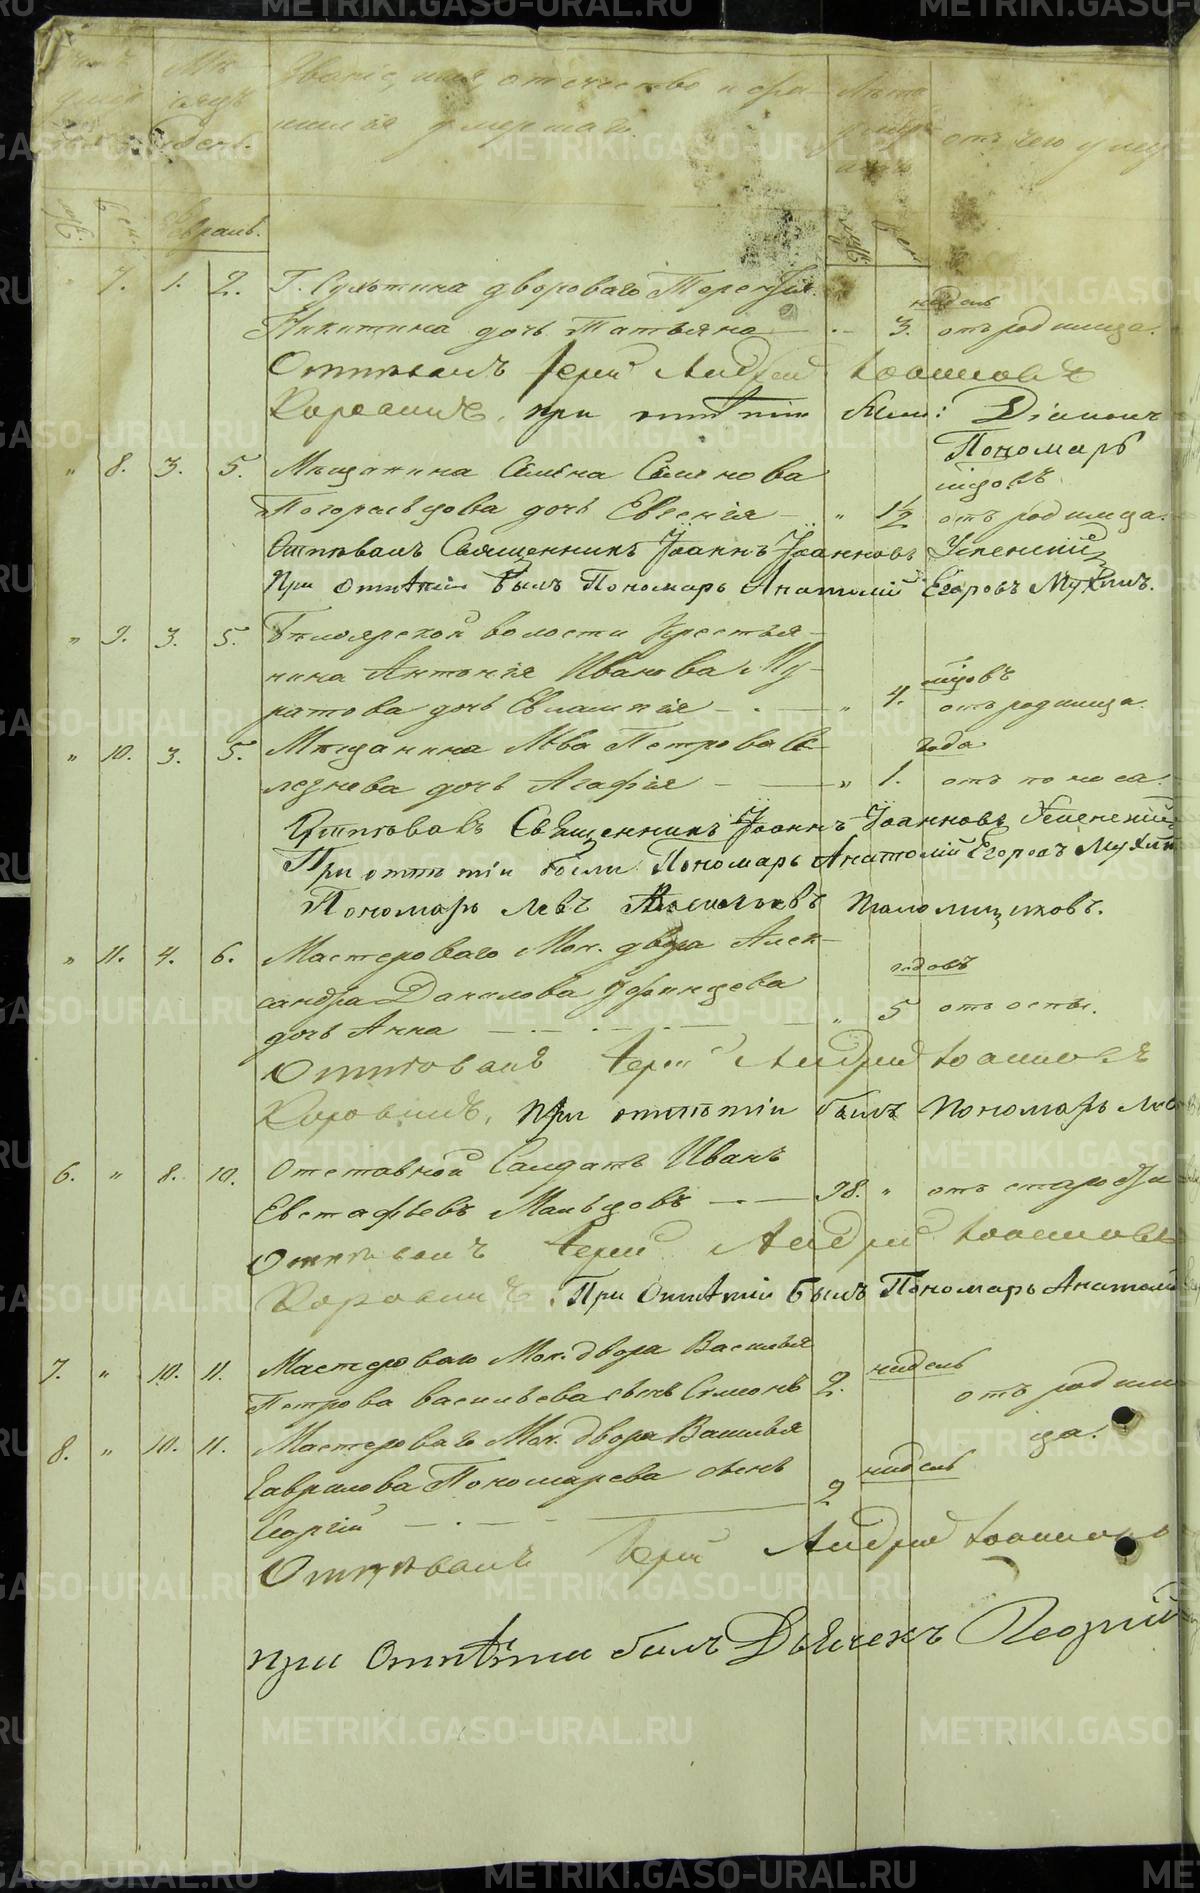 METRIKI.GASO-URAL.RU
Звание, имя, отечество и фа-
милія умершаго.
отъ чего умер
Февраль.
" 7. 1. 2. Г. дворового Терентія
Никитина дочь Татьяна " 3. недель отъ родимца.
Отпѣвалъ Іерей Андрей Іоанновъ
Коровинъ, при отпѣтіи были: Діаконъ
Пономарь
" 8. 3. 5. Мещанина Семена Семенова
дочь Евгенія " 1/2 годовъ отъ родимца.
Отпѣвалъ Священникъ Іоаннъ Іоанновъ Успенскій
При отпѣтіи былъ Пономарь Анатолій Егоровъ Мухинъ.
" 9. 3. 5. Белоярской волости крестья-
нина Антонія Иванова Му-
ратова дочь Евлампія " 4. отъ родимца
" 10. 3. 5. Мещанина Льва Петрова Се-
лезнева дочь Агафія " 1. года отъ поноса.
Отпѣвалъ Священникъ Іоаннъ Іоанновъ Успенскій
При отпѣтіи были Пономарь Анатолій Егоровъ Мухин
Пономарь Левъ Васильевъ
" 11. 4. 6. Мастероваго Мон. двора Алек-
сандра Данилова Уфинцова
дочь Анна " 5 годовъ отъ оспы.
Отпѣвалъ Іерей Андрей Іоанновъ
Коровинъ, при отпѣтіи былъ Пономарь Лев
6. " 8. 10. Отставной Солдатъ Иванъ
Евстафьевъ Мальцовъ 98. " отъ старости
Отпѣвалъ Іерей Андрей Іоанновъ
Коровинъ. При отпѣтіи былъ Пономарь Анатолій
7. " 10. 11. Мастероваго Мон. двора Василья
Петрова Васильева сынъ Симеонъ 2. недель отъ родим
ца.
8. " 10. 11. Мастероваго Мон. двора Василья
Гаврилова Пономарева сынъ
Георгій 2 недель
Отпѣвалъ Іерей Андрей Іоаннов
при отпѣтіи былъ Дьячекъ Георгій